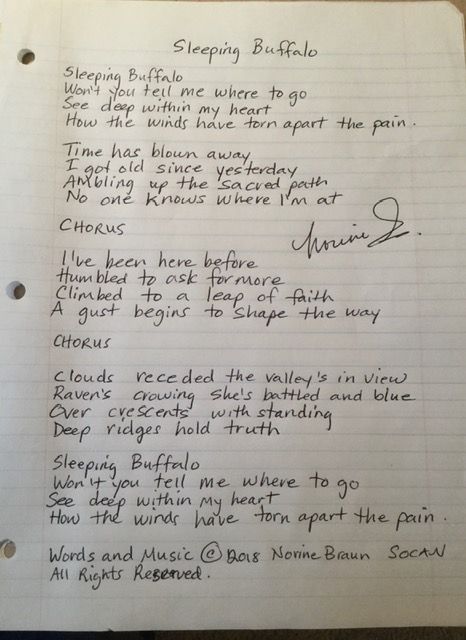 Sleeping Buffalo
Sleeping Buffalo
Won't you tell me where to go
See deep within my heart
How the winds have torn apart the pain.
Time has blown away
I got old since yesterday
Ambling up the sacred path
No one knows where I'm at
CHORUS
Norine
I've been here before
Humbled to ask for more
Climbed to a leap of faith
A gust begins to shape the way
CHORUS
Clouds receded the valley's in view
Raven's crowing she's battled and blue
Over crescents with standing
Deep ridges hold truth
Sleeping Buffalo
Won't you tell me where to go
See deep within my heart
How the winds have torn apart the pain.
Words and Music © 2018 Norine Braun SOCAN
All Rights Reserved.